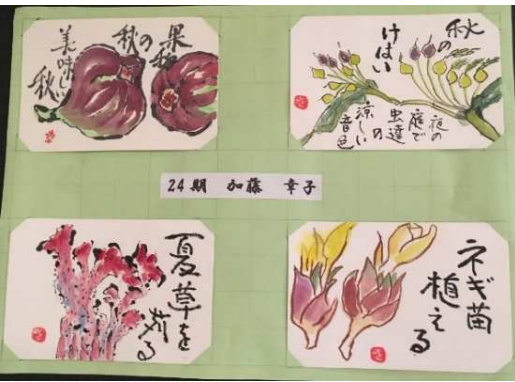 果物
の秋
秋
美味しい
秋
秋の
けはい
夜の
庭で
虫達
の
涼しい
音色
24期 加藤 幸子
夏草を
刈る
ネギ苗
植える